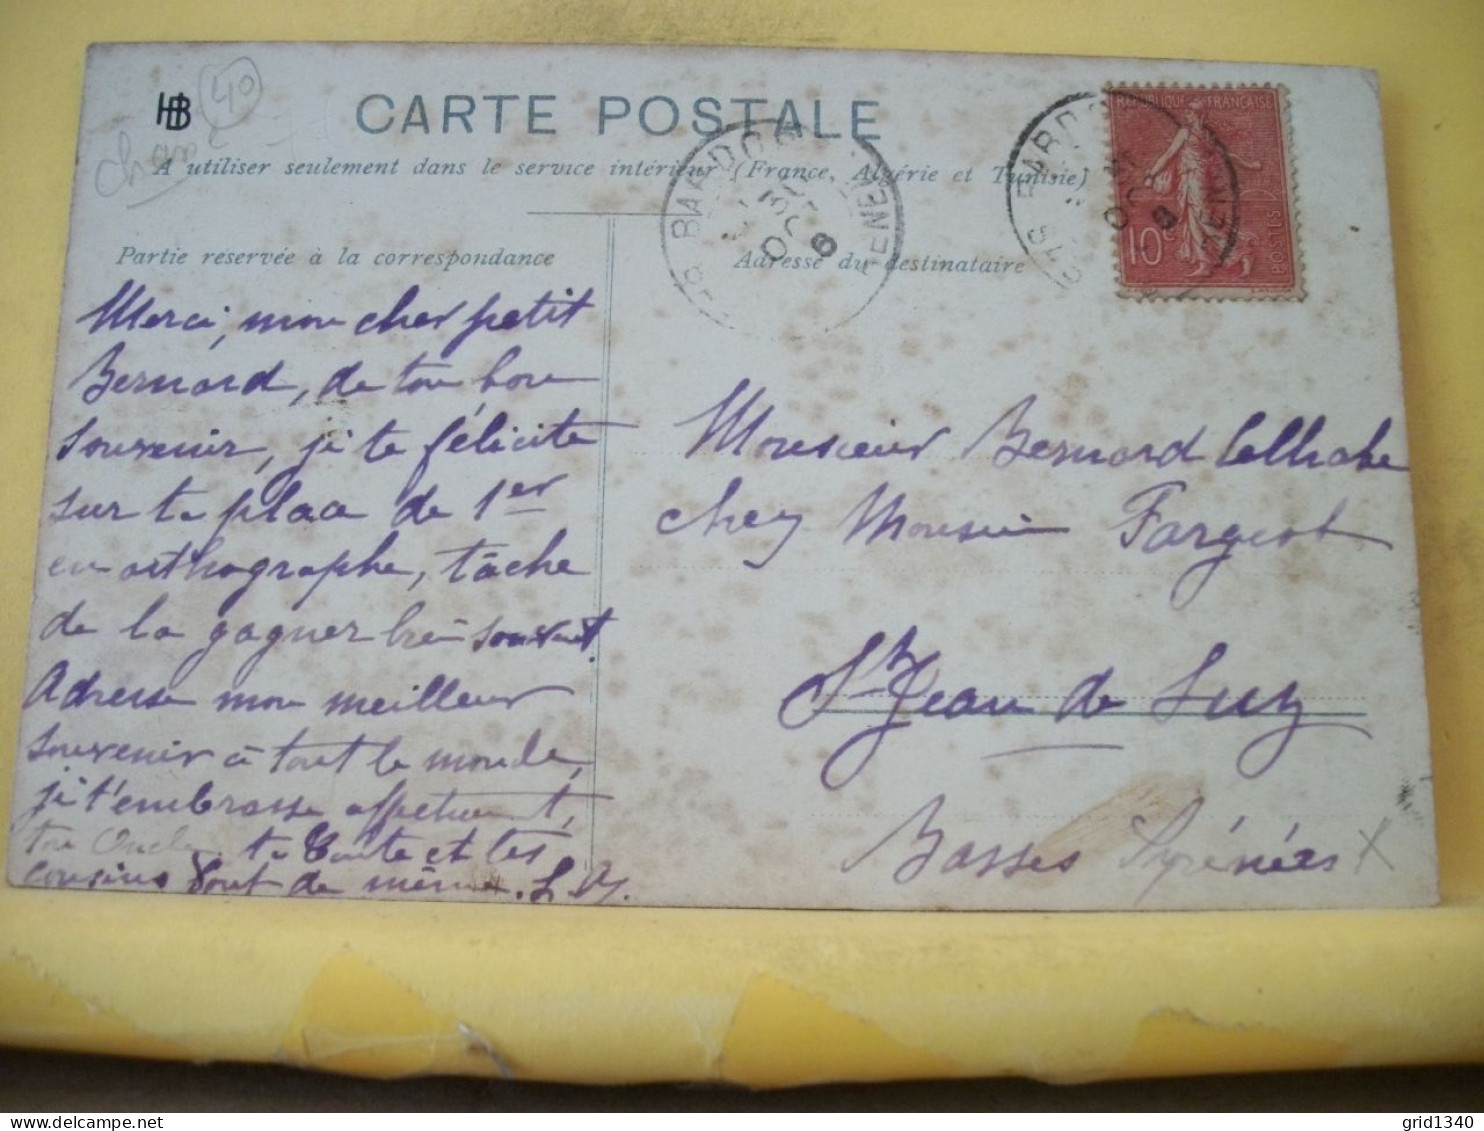 HB
40
CARTE POSTALE
A utiliser seulement dans le service intérieur (France, Algérie et Tunisie)
RÉPUBLIQUE FRANÇAISE
10c
POSTES
Partie réservée à la correspondance
Adresse du destinataire
Merci, mon cher petit
Bernard, de ton bon
souvenir, je te félicite
sur ta place de 1er
en orthographe, tâche
de la gagner bien souvent.
Adresse mon meilleur
souvenir à tout le monde,
je t'embrasse affectueusement,
ton Oncle. ta Tante et tes
cousins font de même.
Monsieur Bernard
chez Monsieur Fargeot
St Jean de Luz
Basses Pyrénées
grid1340